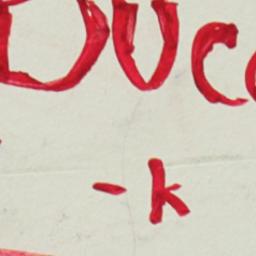 Duc
-k